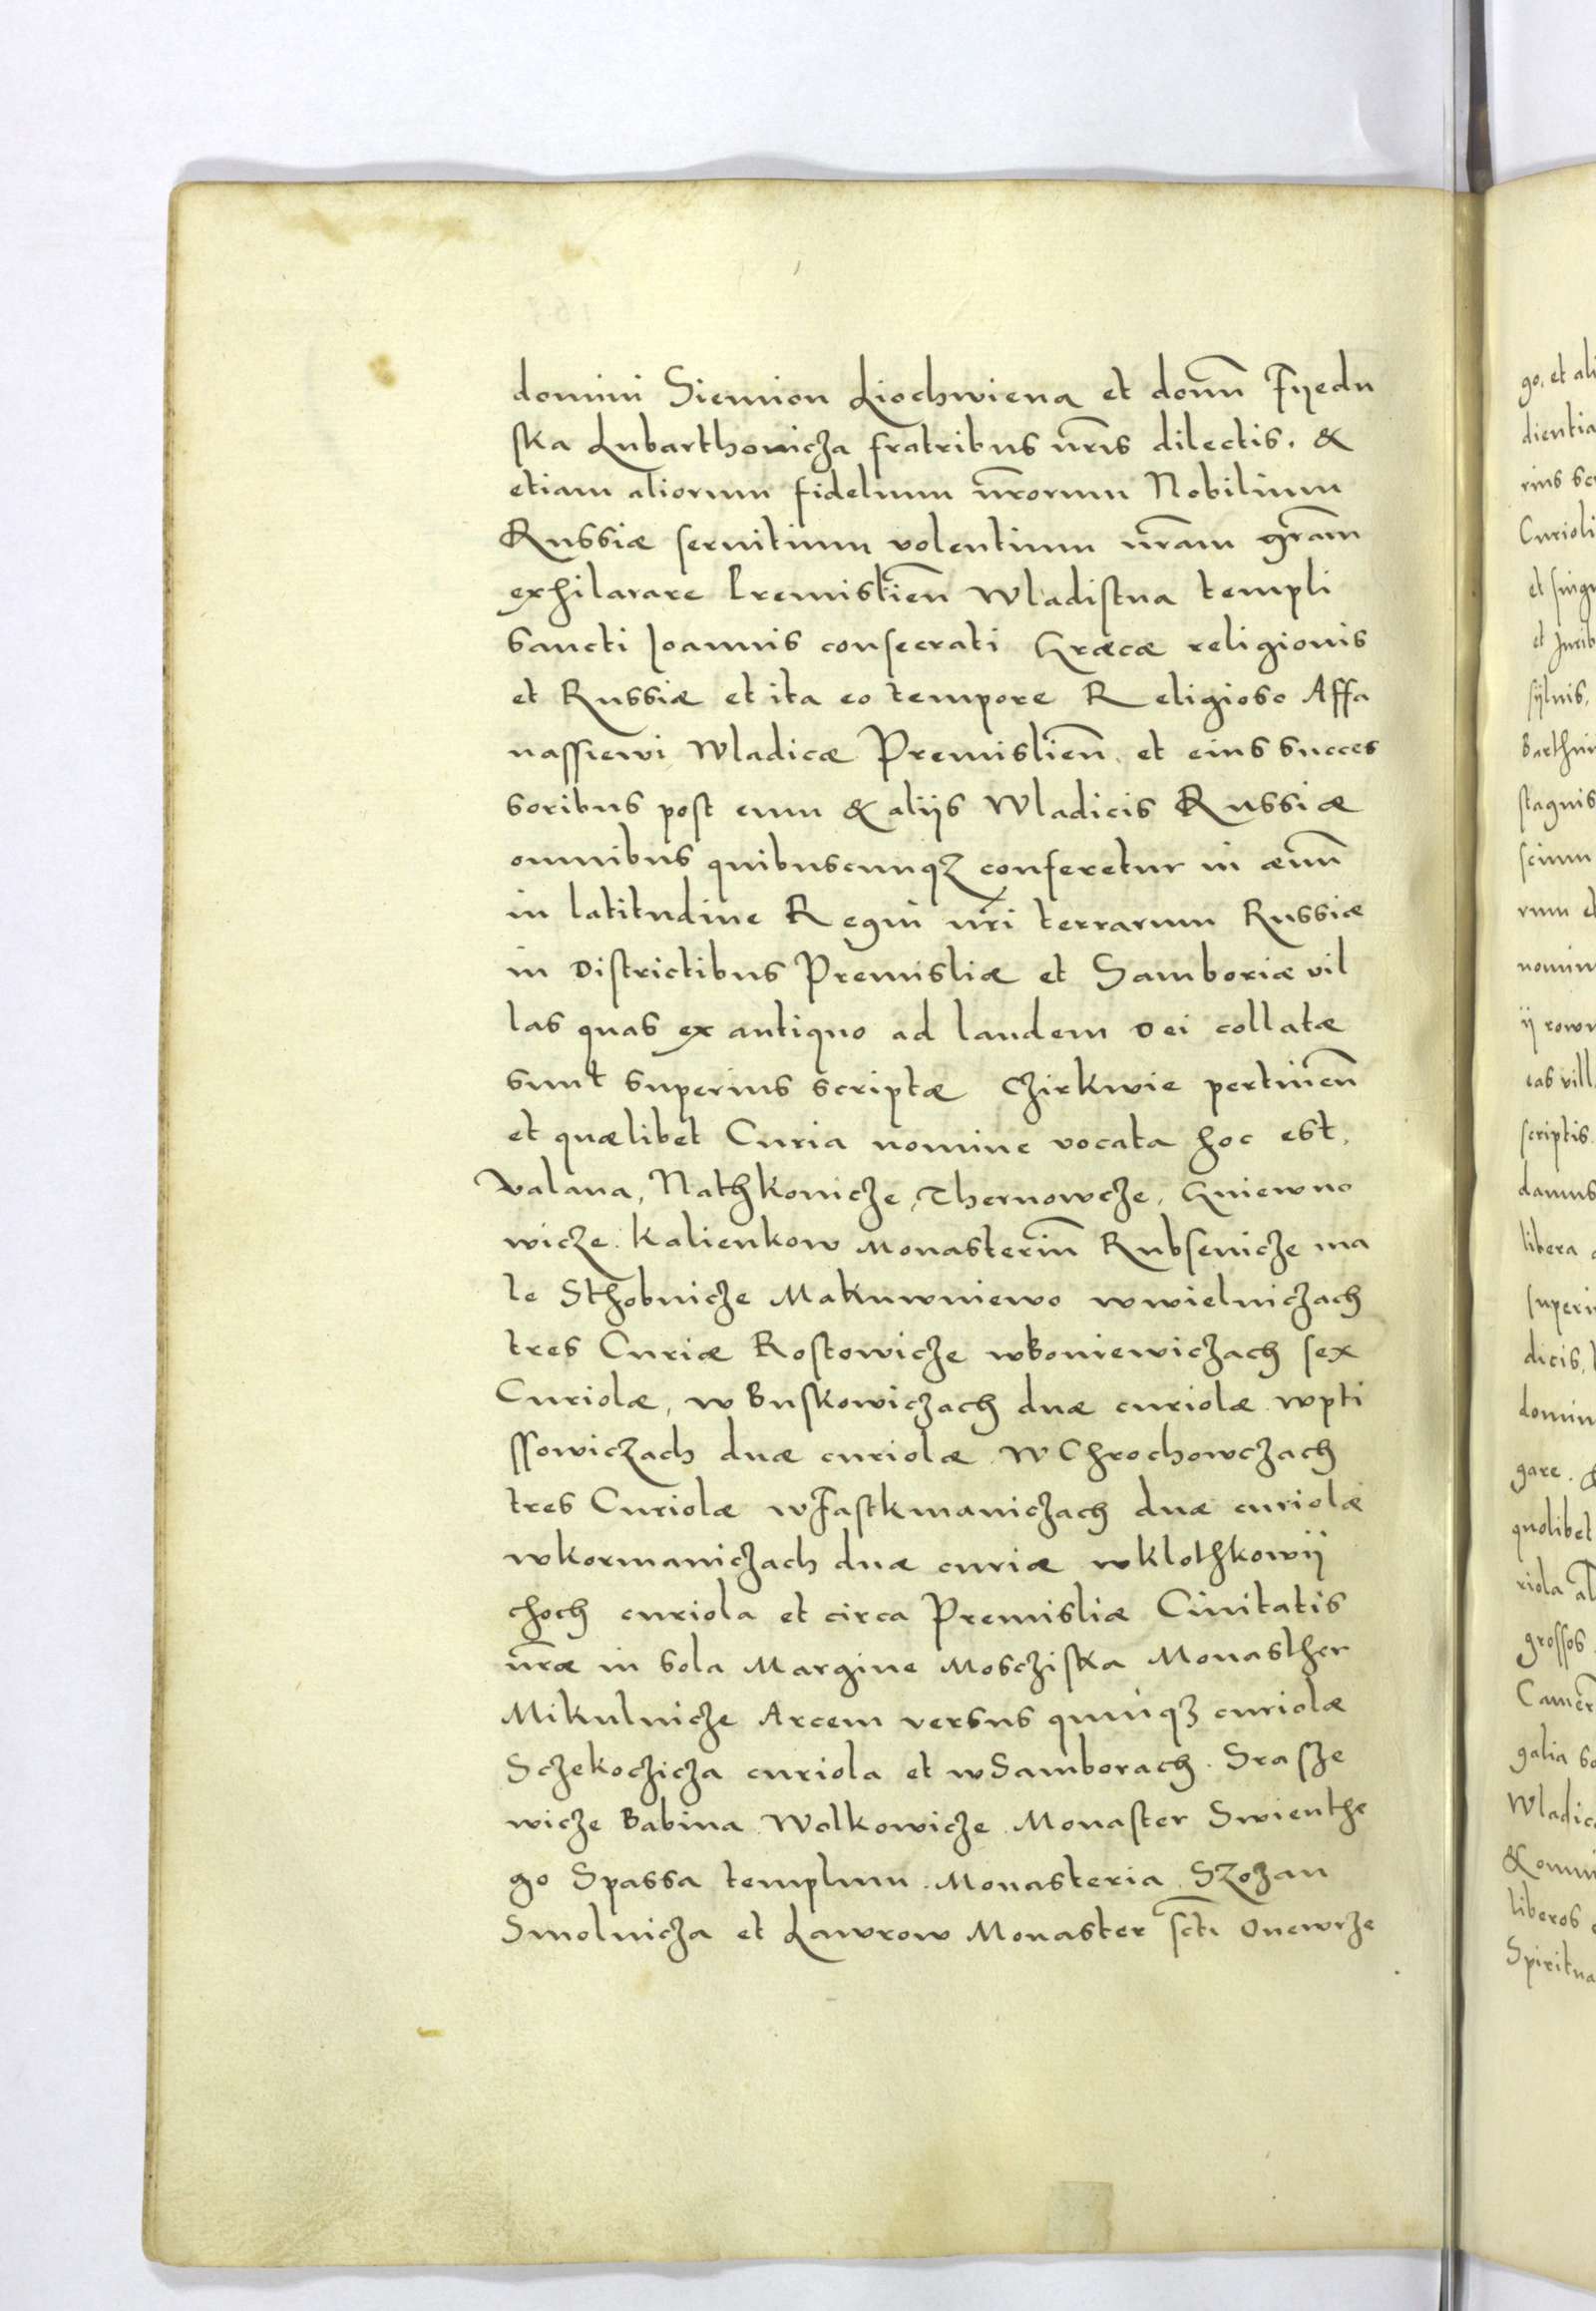 domini Siemion Liochwiena et domn̄ Fyedu
ska Lubarthouicza fratribus nr̄is dilectis. &
etiam aliorum fidelium nr̄orum Nobilium
Russiæ seruitium volentium nr̄am gr̄am
exhilarare Premislien̄ Wladistua templi
Sancti Joannis consecrati Græcæ religionis
et Russiæ et ita eo tempore Religioso Affa
nassiewi Wladicæ Premislien̄ et eius succes
soribus post eum & aliis Wladicis Russiæ
omnibus quibuscunqz conferetur in æuū
in latitudine Regni nr̄i terrarum Russiæ
in Districtibus Premisliæ et Samboriæ vil
las quas ex antiquo ad laudem Dei collatæ
sunt superius scriptæ Czirkwie pertinen̄
et quælibet Curia nomine vocata hoc est,
Valaua, Nathkouicze, Thernowcze, Gniewno
wicze. Kalienkow Monasteriū Rubsenicze ma
le Sthobnicze Makuwniewo wwielniczach
tres Curiæ Rostowicze wboniewiczach sex
Curiolæ, w Buskowiczach duæ curiolæ wpti
ssowiczach duæ curiolæ w Chrochowczach
tres Curiolæ wFastkmaniczach duæ curiolæ
wkormaniczach duæ curiæ wklothkowij
choch curiola et circa Premisliæ Ciuitatis
nr̄æ in sola Margine Moscziska Monasther
Mikulnicze Arcem versus quinqz curiolæ
Sczekoczicza curiola et wSamborach. Srasze
wicze Babina Walkowicze Monaster Swienthe
go Spassa templum. Monasteria Szozan
Smolnicza et Lawrow Monaster sct̄i Onewrze
go, et ali
dientia
rius scr
Curioli
et singu
et Jurib
syluis,
Barthni
stagnis
scium
rum
nomin
ij rown
cas vill
scriptis
damus
libera
superi
dicis,
domin
gare. &
quolibet
riola al
grossos
Camer̄
galia so
Wladic
& omni
liberos
Spiritua